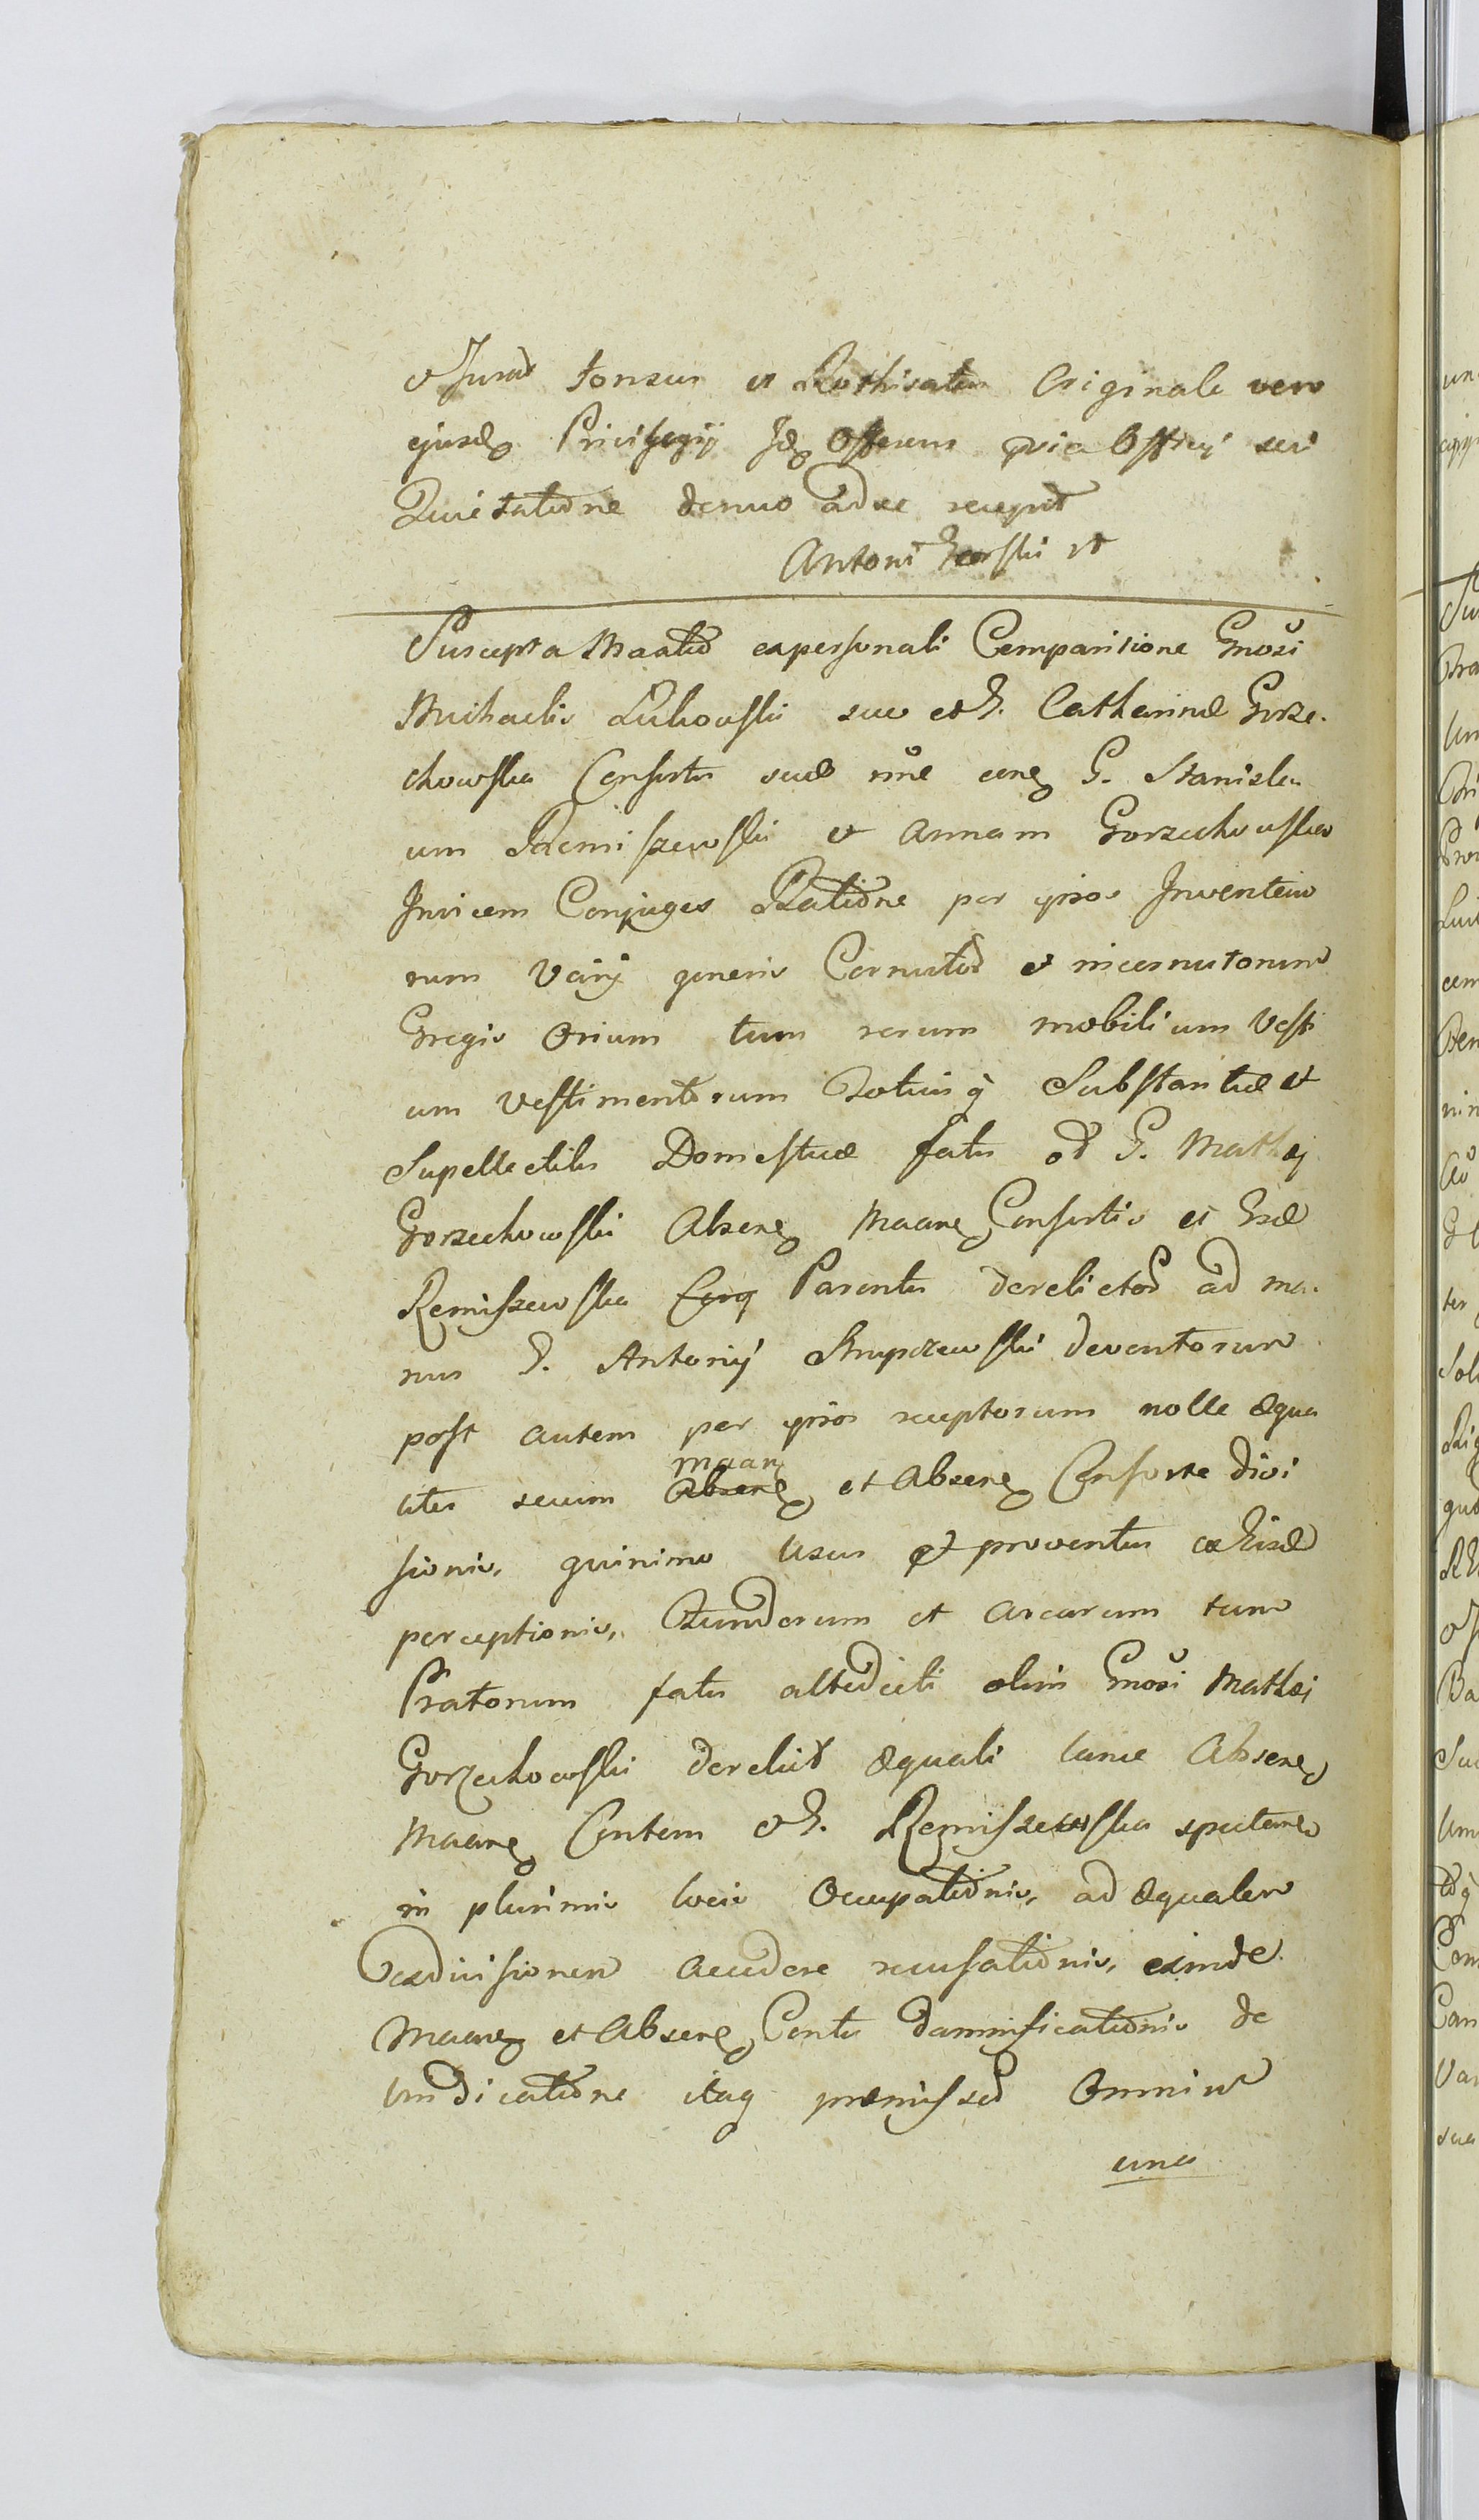 et Jurad tonsus et Rothisatus Originale vero
ejusdq Privilegij Jdq Offerens pria Officij sui
Quietatione denuo ad se recepit
Antoni Gorski rt
Suscepta Maatio expersonali Comparitione Gnosi
Michaelis Lukowski suo et G. Catharinæ Gorze-
chowska Consortis suæ nne conq G. Stanisla
um Remiszewski et Annam Gorzechowska
Invicem Conjuges Ratione per ipsos Inventario
rum Varij generis Cornutor et incornutorum
Gregis Ovium tum rerum mobilium Vesti
um vestimentorum Totiusq Substantiæ et
Supellectilis Domesticæ fatis od G. Mathej
Gorzechowski Absenq Maanq Consortis et Gsæ
Remiszewska Parentis derelictor ad ma-
nus G. Antonij Krupczewski deventorum
post autem per ipsos receptorum nolle æqua
liter secum maanq et Absenq Consorte Divi
sionis, quinimo Usus et proventus ex Eisd
perceptionis, Fundorum et Arearum tum
Pratorum fatis altedicti olim Gnosi Mathæi
Gorzechowski derelict æquali lance Absenq
Maanq Contem et G. Remiszewska spectan
in plurimis locis Occupationis, ad æqualem
exdivisionem accedere recusationis, exinde
Maanq et Absenq Contis damnificationis de
Vindicatione itaq præmissor Omnium
una